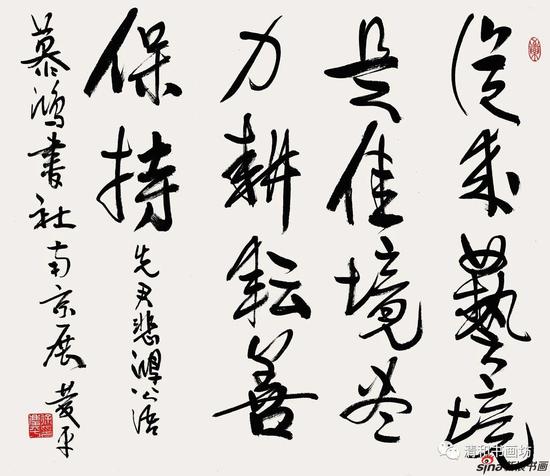 從来藝境
是佳境尽
力耕耘善
保持 先君悲鴻公语
慕鴻書社南京展 慶平
清和书画坊
sina新浪书画